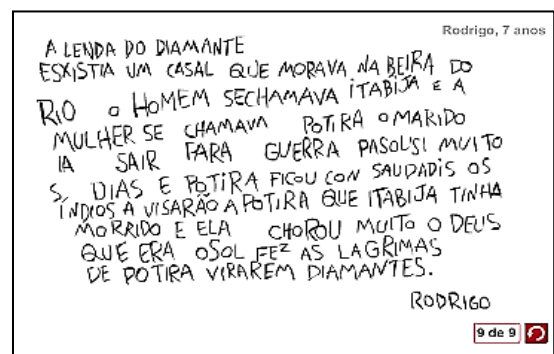 Rodrigo, 7 anos
A LENDA DO DIAMANTE
ESXISTIA UM CASAL QUE MORAVA NA BEIRA DO
RIO O HOMEM SECHAMAVA ITABIJA E A
MULHER SE CHAMAVA POTIRA OMARIDO
IA SAIR FARA GUERRA PASOUSI MUITO
S, DIAS E POTIRA FICOU CON SAUDADIS OS
ÍNDIOS A VISARÃO A POTIRA QUE ITABIJA TINHA
MORRIDO E ELA CHOROU MUITO O DEUS
QUE ERA OSOL FEZ AS LAGRIMAS
DE POTIRA VIRAREM DIAMANTES.
RODRIGO
9 de 9